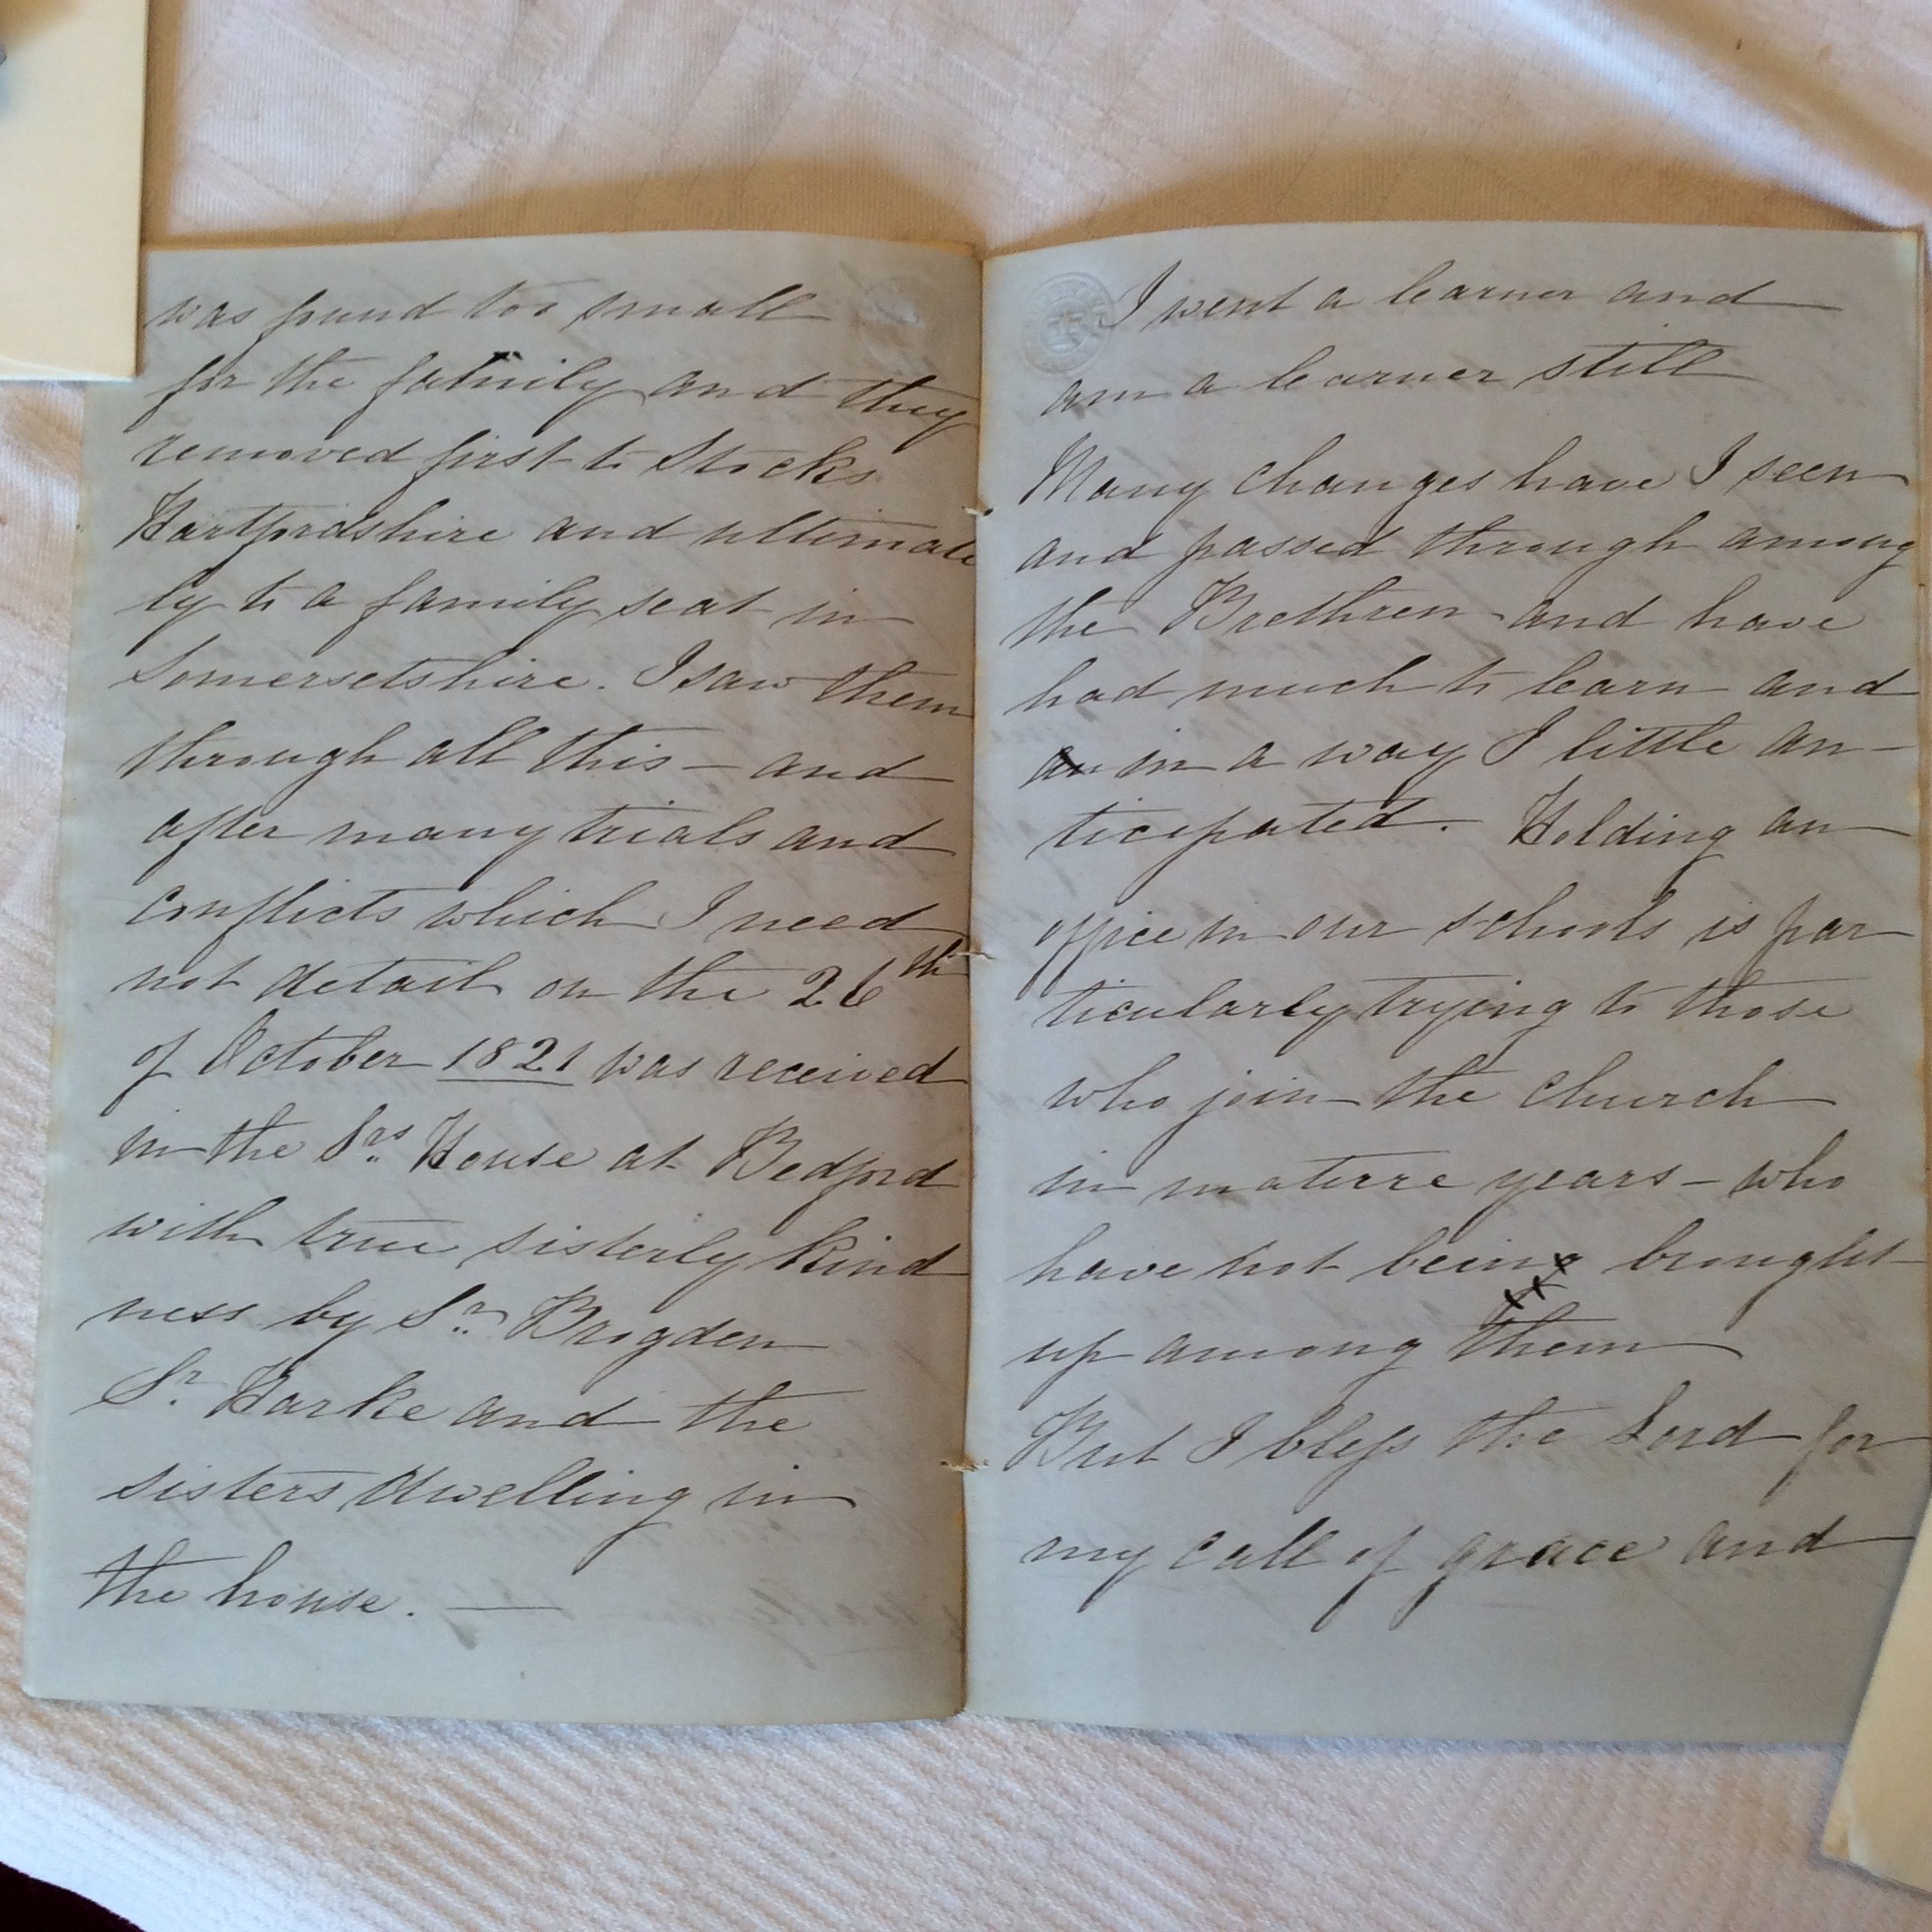 was found too small
for the family and they
removed first to Stocks
Hartfordshire and ultimate
ly to a family seat in
Somersetshire. I saw them
through all this – and
after many trials and
conflicts which I need
not detail on the 26th
of October 1821 was received
in the Srs House at Bedford
with true sisterly kind
ness by Sr Brogden
Sr. Harke and the
sisters dwelling in
the house. —
I went a learner and
am a learner still
Many changes have I seen
and passed through among
the Brethren and have
had much to learn and
in a way I little an-
ticipated. Holding an
office in our schools is par
ticularly trying to those
who join the church
in mature years – who
have not being brought
up among them
But I bless the Lord for
my call of grace and